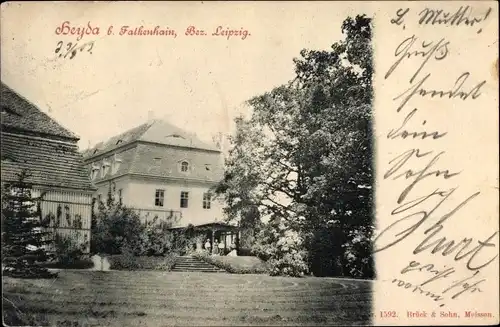 Heyda b. Falkenhain, Bez. Leipzig.
L. Mutter!
Gruß
sendet
dein
Sohn
Kurt
1592. Brück & Sohn, Meissen.